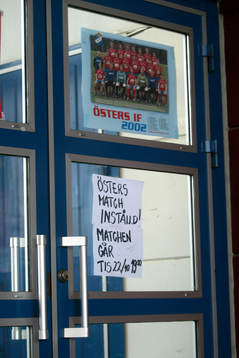 ÖSTERS IF
2002
ÖSTERS
MATCH
INSTÄLLD!
MATCHEN
GÅR
TIS 22/10 1900